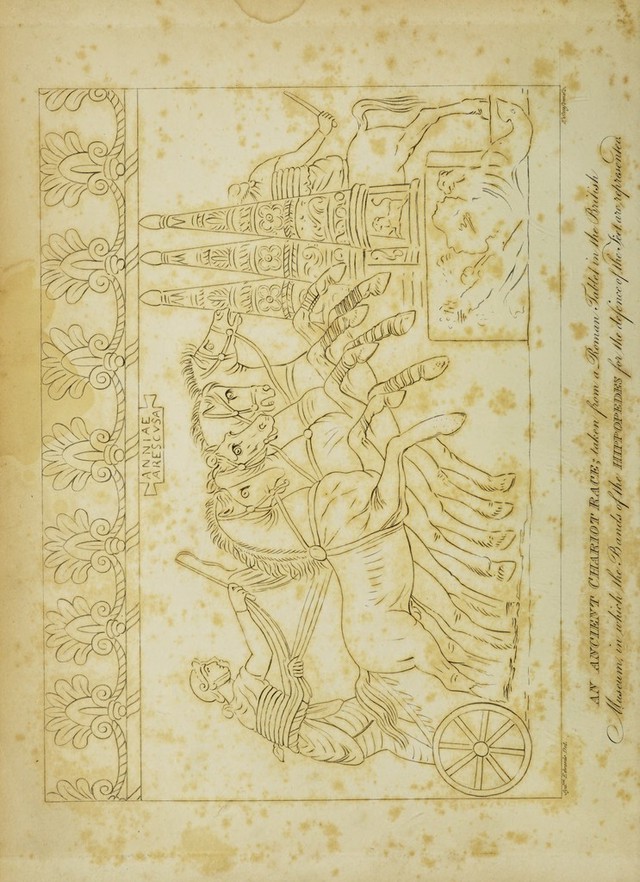 ANNIAE
ARESCVSA
AN ANCIENT CHARIOT RACE; taken from a Roman Tablet in the British
Museum, in which the Bands of the HIPPOPEDES for the defence of the Feet are represented